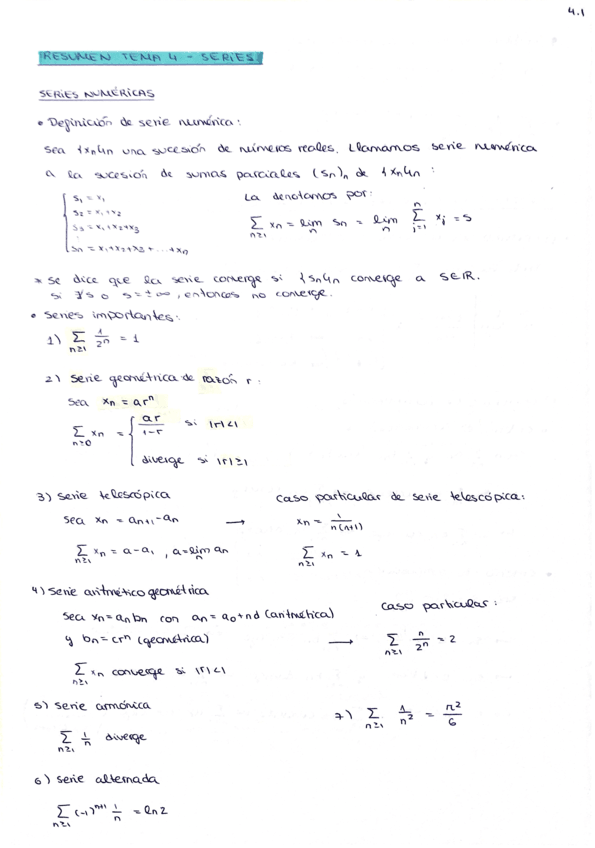 4.1
RESUMEN TEMA 4 - SERIES
SERIES NUMÉRICAS
• Definición de serie numérica:
Sea {xn}n una sucesión de números reales. Llamamos serie numérica
a la sucesión de sumas parciales (sn)n de {xn}n :
S1 = x1
S2 = x1+x2
S3 = x1+x2+x3
Sn = x1+x2+x3+...+xn
La denotamos por:
∑n≥1 xn = lim n sn = lim n ∑ j=1 n xj = s
* se dice que la serie converge si {sn}n converge a s∈R.
si ∄s o s=±∞, entonces no converge.
• Series importantes:
1) ∑n≥1 1/2^n = 1
2) Serie geométrica de razón r:
Sea xn = ar^n
∑n≥0 xn = { ar/1-r si |r|<1
diverge si |r|≥1
3) Serie telescópica
sea xn = an+1-an →
∑n≥1 xn = a-a1 , a=lim n an
caso particular de serie telescópica:
xn = 1/n(n+1)
∑n≥1 xn = 1
4) Serie aritmético geométrica
Sea xn=anbn con an=a0+nd (aritmética)
y bn=cr^n (geométrica) →
∑n≥1 xn converge si |r|<1
caso particular:
∑n≥1 n/2^n = 2
5) Serie armónica
∑n≥1 1/n diverge
7) ∑n≥1 1/n^2 = π^2/6
6) serie alternada
∑n≥1 (-1)^n+1 1/n = ln2